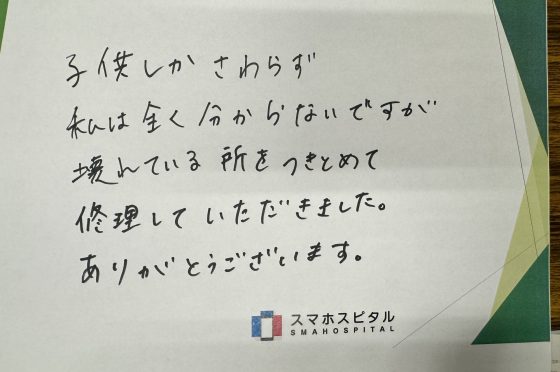 子供しかさわらず
私は全く分からないですが
壊れている所をつきとめて
修理していただきました。
ありがとうございます。
スマホスピタル
SMAHOSPITAL